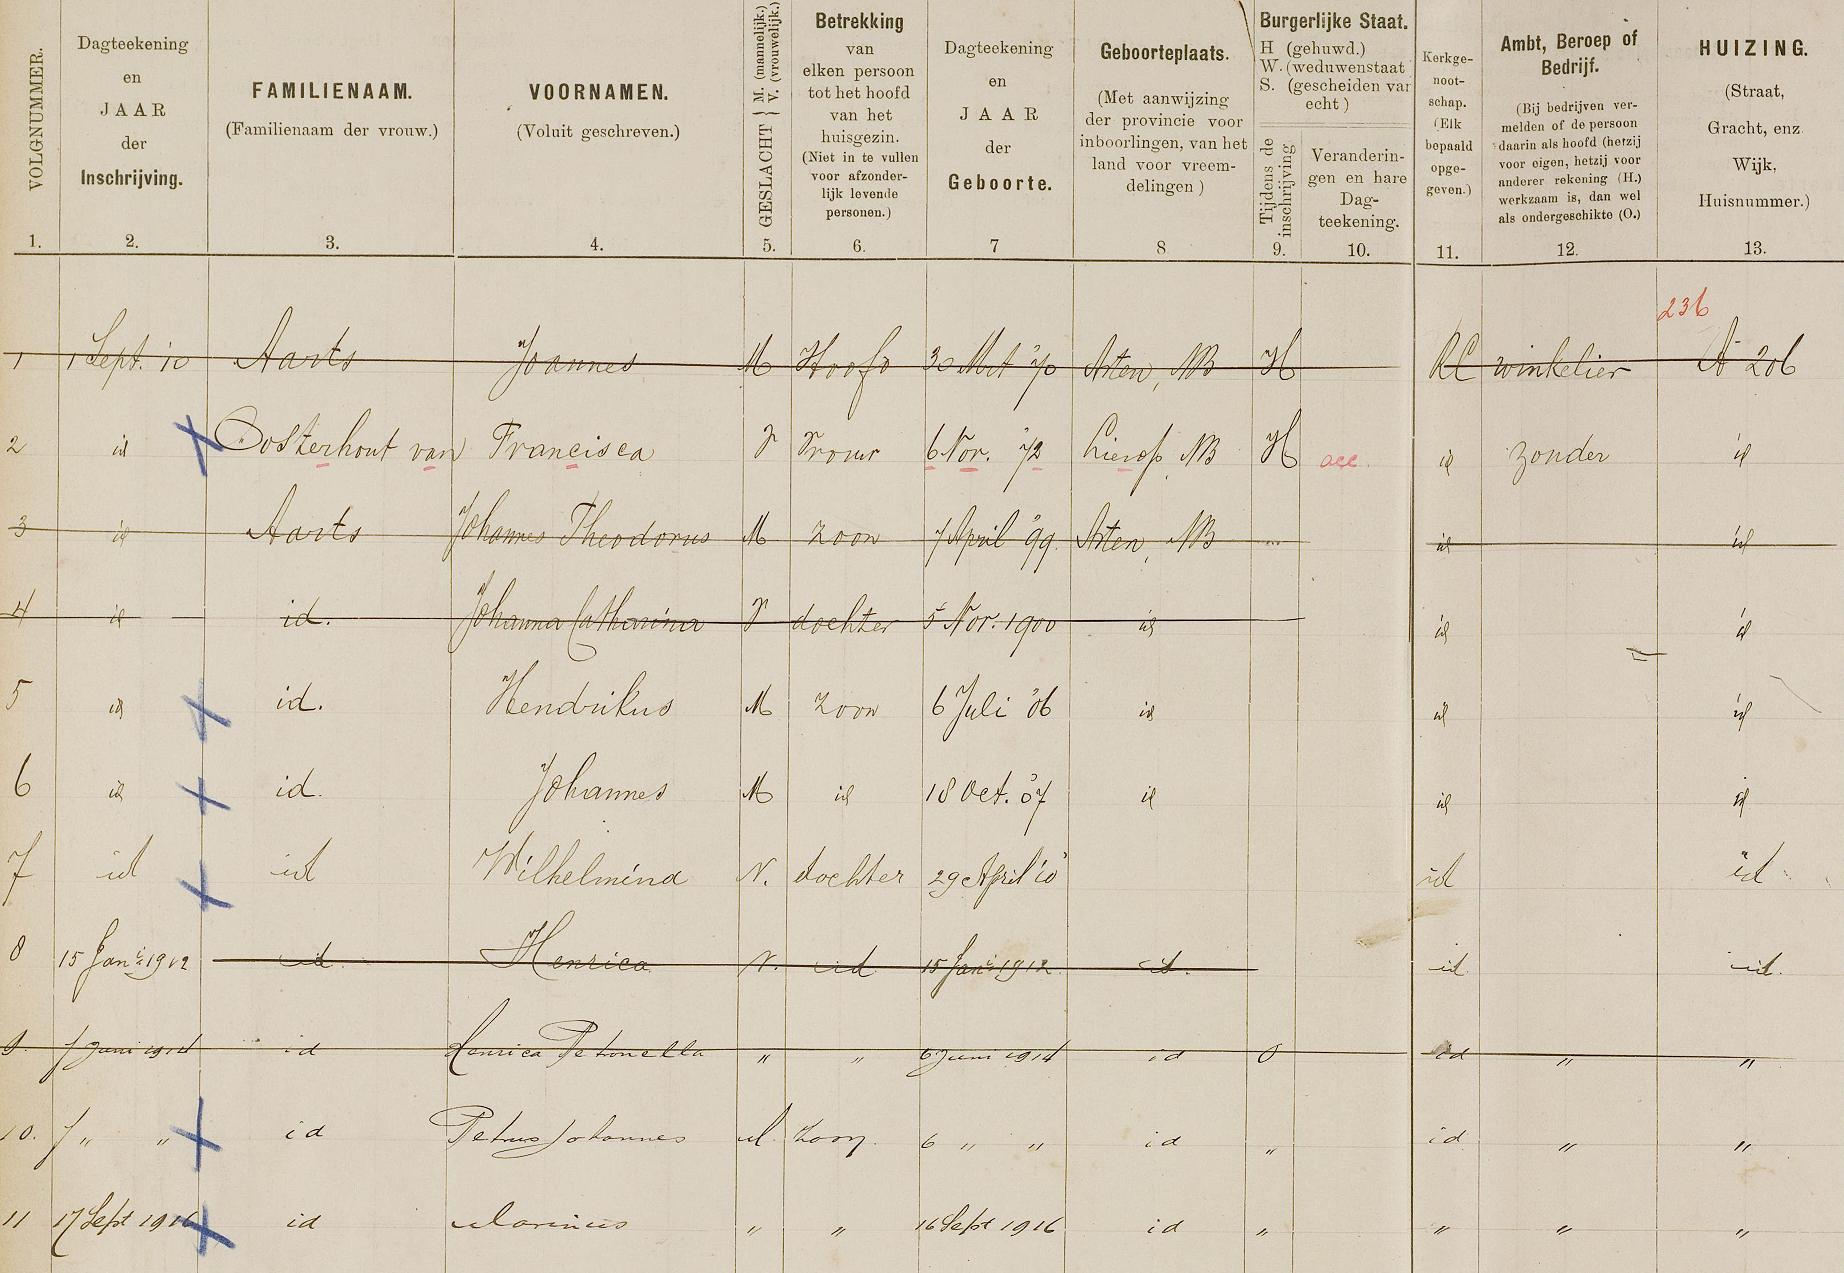 VOLGNUMMER.
Dagteekening
en
JAAR
der
Inschrijving.
FAMILIENAAM.
(Familienaam der vrouw.)
VOORNAMEN.
(Voluit geschreven.)
GESLACHT { M. (mannelijk.) V. (vrouwelijk.)
Betrekking
van
elken persoon
tot het hoofd
van het
huisgezin.
(Niet in te vullen
voor afzonder-
lijk levende
personen.)
Dagteekening
en
JAAR
der
Geboorte.
Geboorteplaats.
(Met aanwijzing
der provincie voor
inboorlingen, van het
land voor vreem-
delingen)
Burgerlijke Staat.
H (gehuwd.)
W. (weduwenstaat
S. (gescheiden van
echt)
Tijdens de
inschrijving
Veranderin-
gen en hare
Dag-
teekening.
Kerkge-
noot-
schap.
(Elk
bepaald
opge-
geven.)
Ambt, Beroep of
Bedrijf.
(Bij bedrijven ver-
melden of de persoon
daarin als hoofd (herzij
voor eigen, hetzij voor
anderer rekening (H.)
werkzaam is, dan wel
als ondergeschikte (O.)
HUIZING.
(Straat,
Gracht, enz
Wijk,
Huisnummer.)
1. 2. 3. 4. 5. 6. 7 8 9. 10. 11. 12. 13.
236
1 1 Sept. 10 Aarts Joannes M Hoofd 30 Mrt '70 Asten, NB H RC winkelier A 206
2 id Oosterhout van Francisca V Vrouw 6 Nov. '72 Lierop, NB H acc. id zonder id
3 id Aarts Johannes Theodorus M zoon 7 April '99. Asten, NB id id
4 id id. Johanna Catharina V dochter 5 Nov. 1900 id id id
5 id id. Hendrikus M zoon 6 Juli '06 id id id
6 id id. Johannes M id 18 Oct. '07 id id id
7 id id Wilhelmina V. dochter 29 April '10 id id
8 15 Jani 1912 id Henrica V. id 15 Jani 1912 id. id id.
9. 7 Juni 1914 id Henrica Petronella " " 6 Juni 1914 id O id " "
10. 7 " " id Petrus Johannes M. zoon. 6 " " id " id " "
11 17 Sept 1916 id Marinus " " 16 Sept 1916 id " " " "